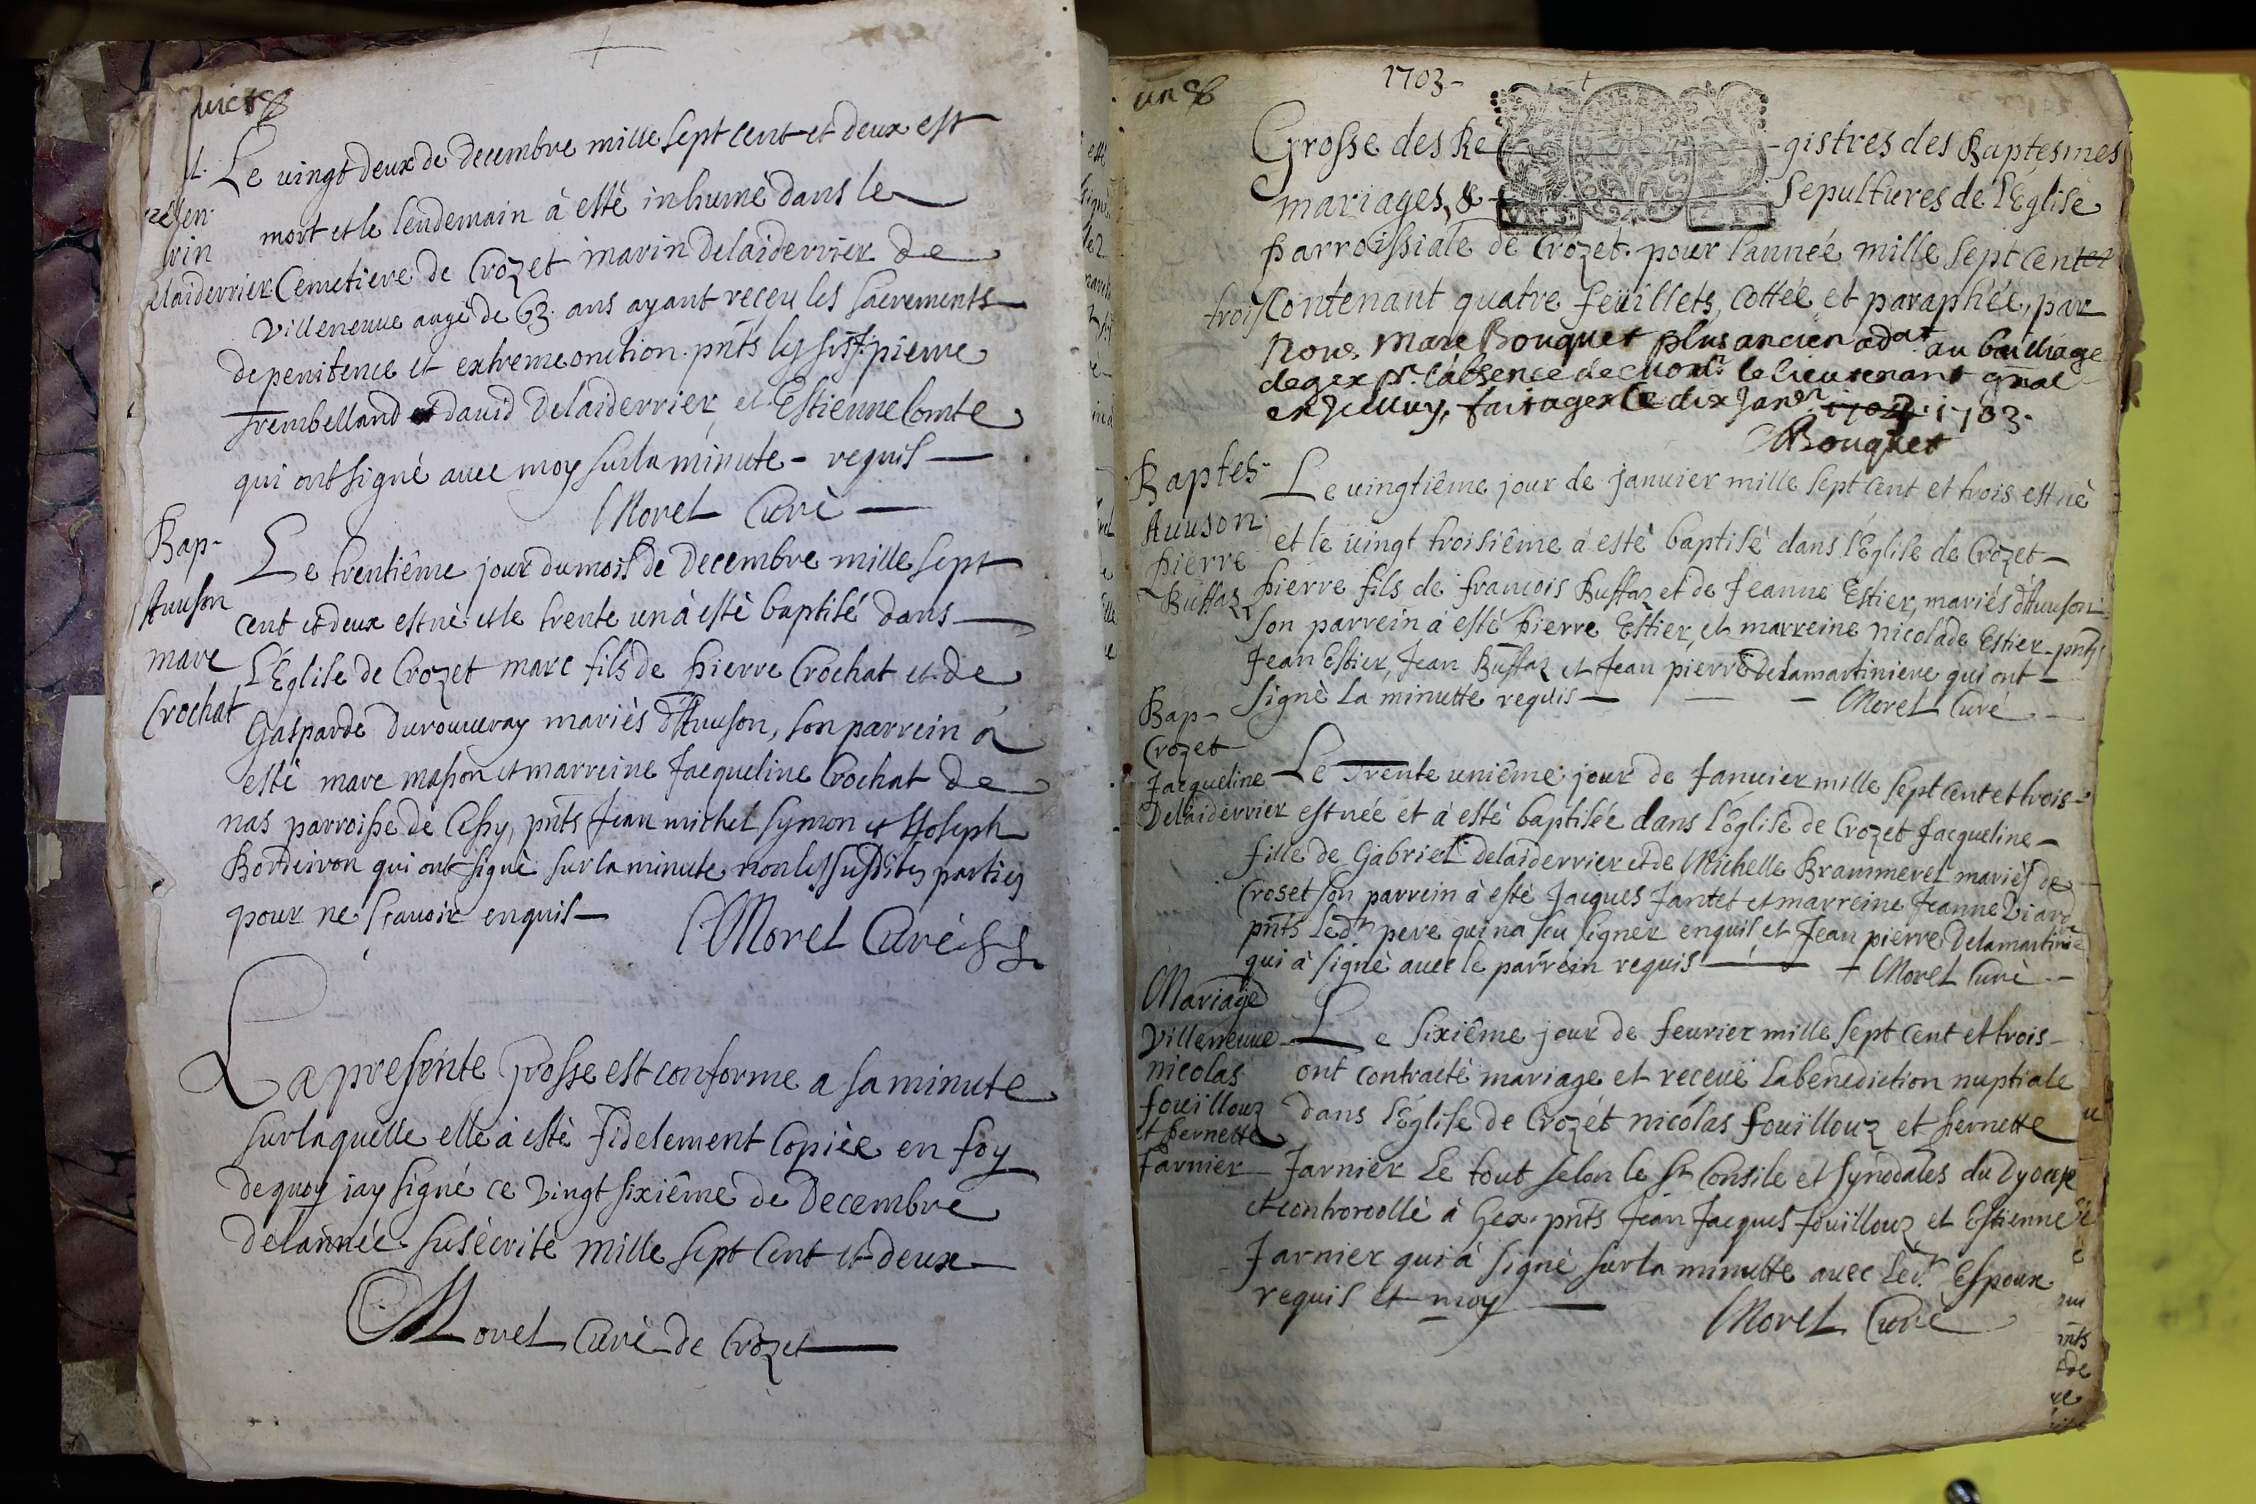 huict
L. Le vingt deux de decembre mille sept cent et deux est
mort et le lendemain à estè inhumè dans le
Cemetiere de Crozet marin Delaiderrier de
rin
elaiderrier
Villeneuve aagé de 63. ans ayant receu les sacrements
de penitence et extreme onction. pnts les
pierre
frembelland et david Delaiderrier et Estienne Comte
qui ont signè avec moy sur la minute - requis
Morel Curè
Bap-
Avuson
marc
Crochat
Le trentiême jour du mois de Decembre mille sept
cent et deux est nè et le trente un à estè baptisé dans
l'Eglise de Crozet marc fils de pierre Crochat et de
Gasparde Durouveray mariès d'Avuson, son parrein à
estè marc masson et marreine Jacqueline Crochat de
nas parroisse de Cessy, pnts Jean michel symon et Joseph
Bordeiron qui ont signè sur la minute non les susdites parties
pour ne scavoir enquis
Morel Curè
La presente grosse est conforme a sa minute
sur laquelle elle à estè fidelement copièe en foy
de quoy jay signé ce vingt sixiême de Decembre
de lannée susécrite mille sept cent et deux
Morel Curè de Crozet
un
1703-
Grosse des Registres des Baptesmes
mariages, & sepultures de l'Eglise
parroissiale de Crozet. pour l'année mille sept cent et
trois Contenant quatre feüillets, cottée et paraphée, par
Nous. Marc Bouquet plus ancien adat au bailliage
de gex pr. l'absence de Monr. le lieutenant gnal
fait a gex le dix Janer 1702. 1703.
Bouquet
Baptes-
Avuson
pierre
Buffaz
Le vingtiême jour de janvier mille sept cent et trois est nè
et le vingt troisiême à estè baptisè dans l'Eglise de Crozet
pierre fils de francois Buffaz et de Jeanne Estier, mariés d'Avuson
son parrein à estè pierre Estier, et marreine nicolade Estier. pnts
Jean Estier, Jean Buffaz et Jean pierre Delamartiniere qui ont
signè la minutte requis
Morel Curé
Bap-
Crozet
Jacqueline
Delaiderrier
Le Trente uniême jour de Janvier mille sept cent et trois
est née et à estè baptisée dans l'Eglise de Crozet Jacqueline
fille de Gabriel delaiderrier et de Michelle Brammerel mariès de
Croset son parrein à estè Jacques Jantet et marreine Jeanne Viard
pnts Ledt pere qui na sçu signer enquis et Jean pierre Delamartinie
qui à signè avec le parrein requis
Morel Curè
Mariage
Villeneuve
nicolas
fouïllouz
et pernette
Jarnier
Le sixiême jour de fevrier mille sept cent et trois
ont contractè mariage et receuë la benediction nuptiale
dans l'Eglise de Crozét nicolas fouïllouz et pernette
Jarnier Le tout selon le St Consile et synodales du Dyocese
et controrollè à Gex. pnts Jean Jacques fouïllouz et Estienne
Jarnier qui à signè sur la minutte avec Ledt. Espoux
requis et moy
Morel Curè